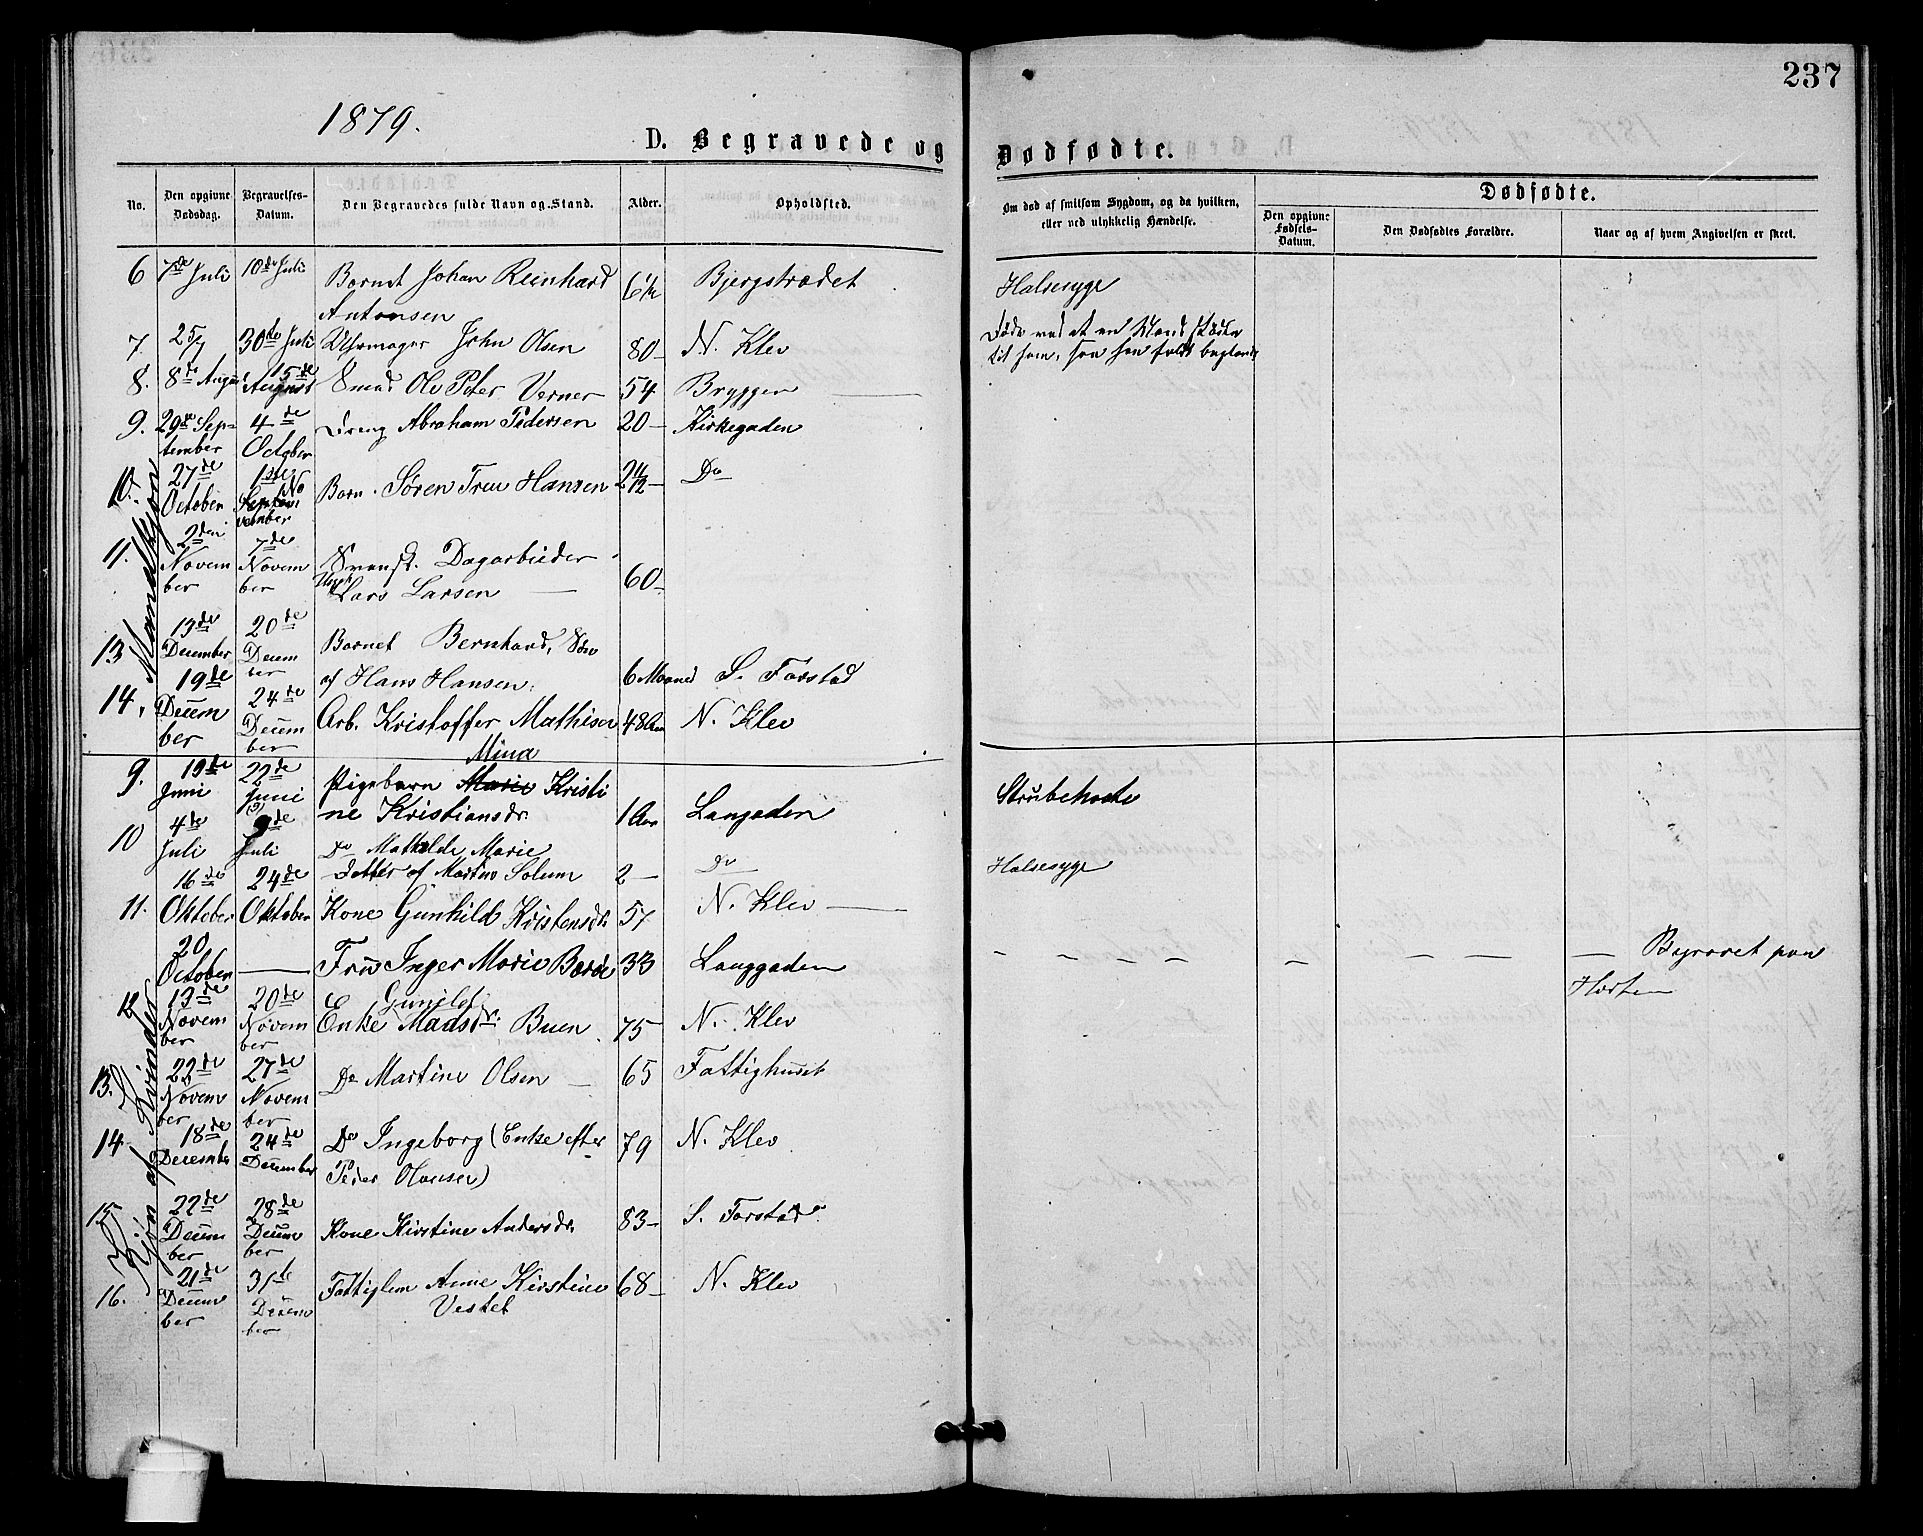 237
1879.
D. Begravede og Dødfødte.
No. Den opgivne Dødsdag. Begravelses-Datum. Den Begravedes fulde Navn og Stand. Alder. Opholdsted. Om død af smitsom Sygdom, og da hvilken, eller ved ulykkelig Hændelse. Dødfødte.
Den opgivne Fødsels-Datum. Den Dødfødtes Forældre. Naar og af hvem Angivelsen er skeet.
6 7de Juli 10de Juli Barnet Johan Reinhard 6 Bjergstrædet Halsesyge
Antonsen
7. 25/7 30te Juli Uhrmager John Olsen 80 — N. Klev Døde ved at en Mand stødte
til ham, saa han faldt baglends
8. 8de August 15de August Smed Ole Peter Verner 54 Bryggen —
9. 29de Sep- 4de Dreng Abraham Pedersen 20 — Kirkegaden
tember October
10. 27de 1ste No Barn. Søren Hansen 2 — Do
October vember
11. 2den 7de
Novem Novem Svensk. Dagarbeider
ber ber Lars Larsen — 60 —
Mandkjøn
13 13de 20de
December Decem Barnet Bernhard, Søn
ber af Hans Hansen. 6 Maaned S. Forstad
14. 19de 24de
Decem Decem Arb. Kristoffer Mathisen 48 Aar N. Klev
ber ber
9. 19de 22de Mina
Juni Juni Pigebarn Marie Kristi Strubehoste
ne Kristiansdr. 1 Aar Langgaden
10 4de 9de
Juli Juli Do Mathilde Marie
Datter af Martin Solum 2 — Do Halsesyge
11. 16de 24de
Oktober Oktober Kone Gunhild Kristensdr. 57 N. Klev —
20
October — Fru Inger Marie 33 Langgaden — — — — — — — — Begravet paa
Horten
12 13de 20de Gunild
Novem Novem Enke Madsdr. Buen 75 — N. Klev
ber ber
13. 22de 27de Do Martine Olsen — 65 Fattighuset
Novem Novem
ber ber
Kjøn af Kvinder
14 18de 24de Do Ingeborg (Enke efter 79 N. Klev
December December Peder Olausen)
15 22de 28de
Decem Decem Kone Kirstine Andersdr. 83 — S. Forstad
ber ber
16. 21de 31te Fattiglem Anne Kirstine 68 — N. Klev
Decem Decem Vestet
ber ber